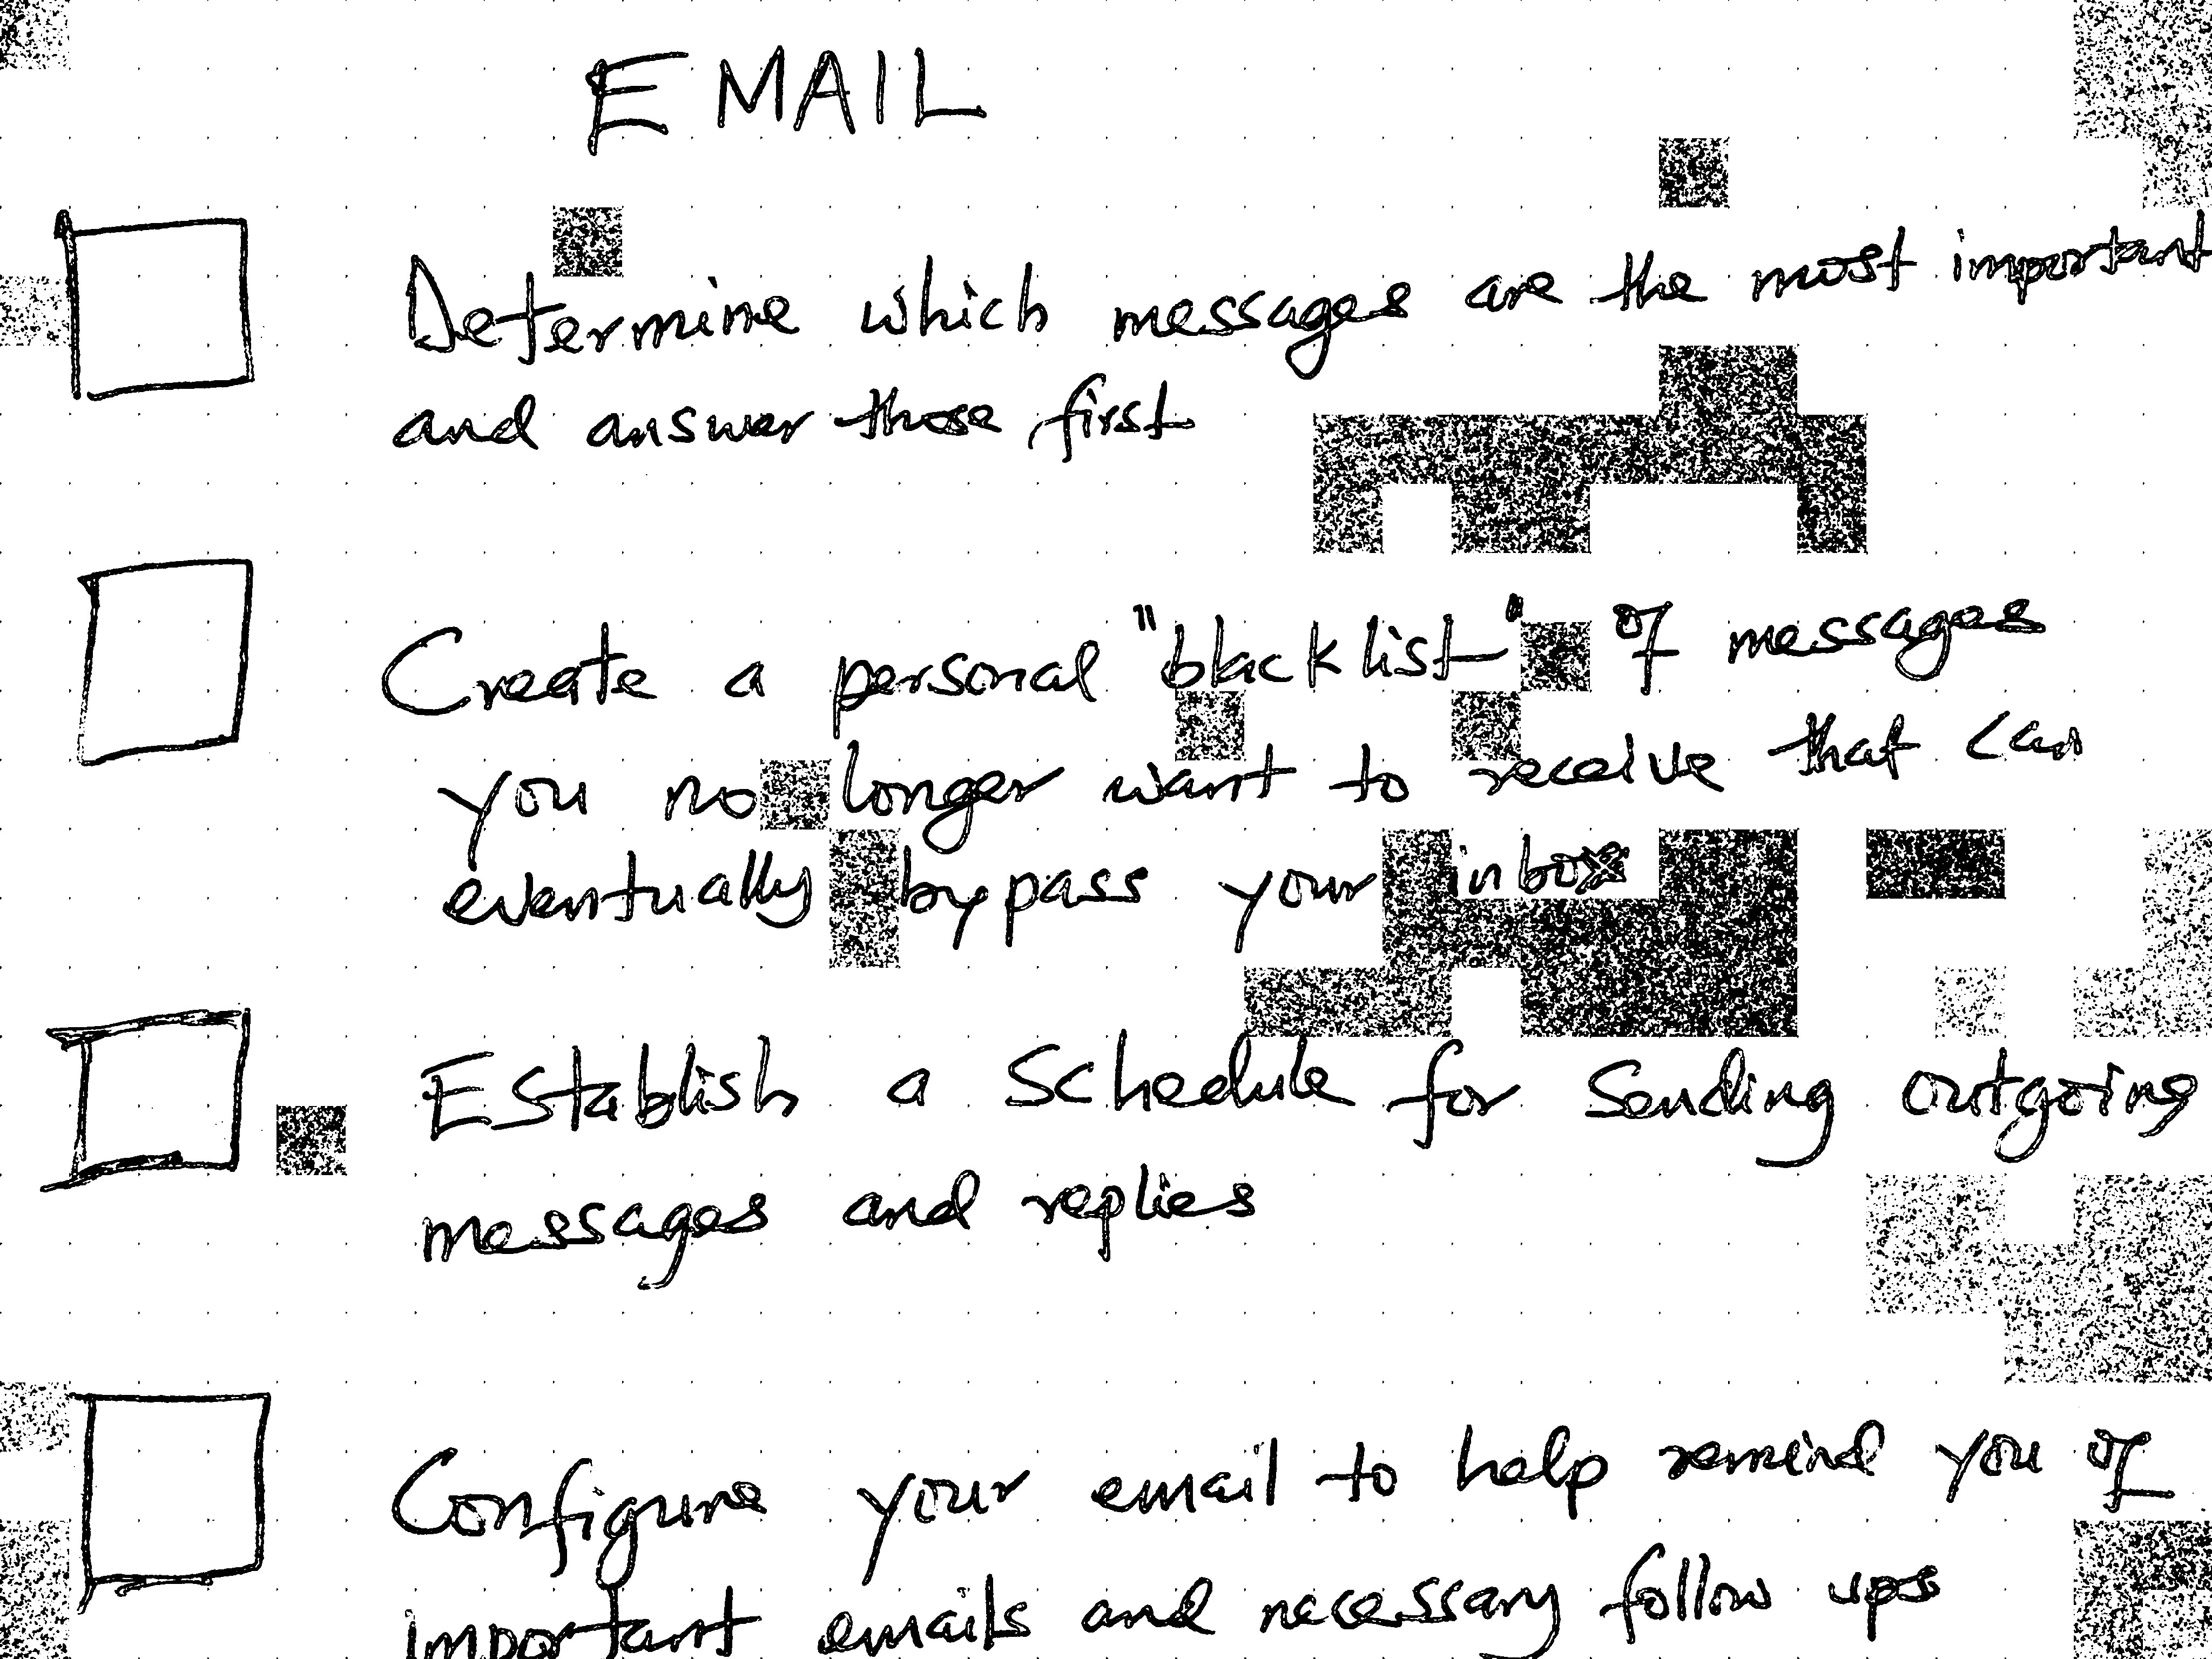 EMAIL
Determine which messages are the most important
and answer those first
Create a personal "blacklist" of messages
you no longer want to receive that can
eventually bypass your inbox
Establish a schedule for sending outgoing
messages and replies
Configure your email to help remind you of
important emails and necessary follow ups